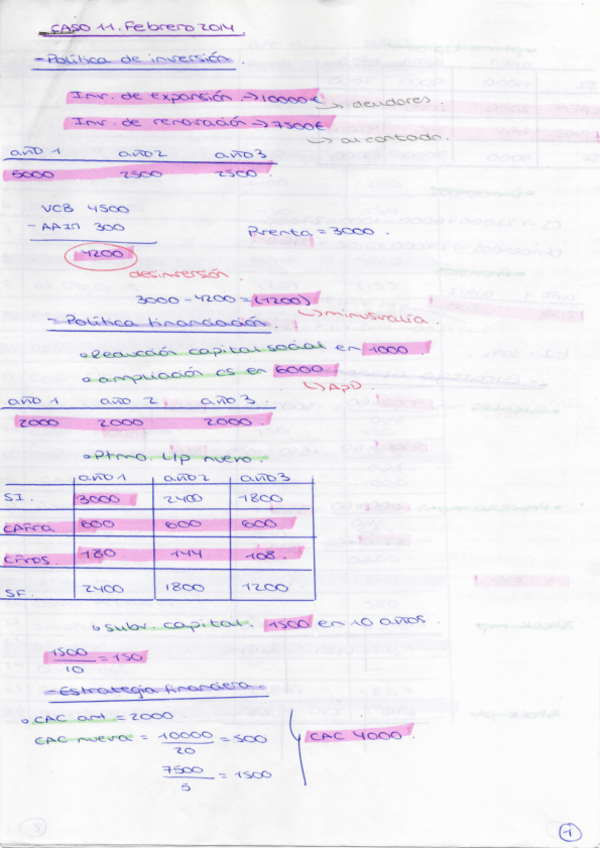 CASO 11. Febrero 2014.
- Política de inversión.
Inv. de expansión → 10000€ → deudores.
Inv. de renovación → 7500€ → al contado.
año 1 año 2 año 3
5000 2500 2500
VCB 4500
- AAIM 300 Prenta = 3000.
4200
desinversión
3000 - 4200 = (1200)
→ minusvalía.
- Política financiación.
• Reducción capital social en 1000
• ampliación CS en 6000.
→ ApD.
año 1 año 2 año 3.
2000 2000 2000.
• Ptmo. L/p nuevo.
año 1 año 2 año 3
SI. 3000 2400 1800
CAfra 600 600 600
Cfros. 180 144 108.
SF. 2400 1800 1200
• subv. capital. 1500 en 10 años.
1500/10 = 150
- Estrategia financiera -
• CAC ant = 2000
CAC nueva = 10000/20 = 500 CAC 4000.
7500/5 = 1500
1